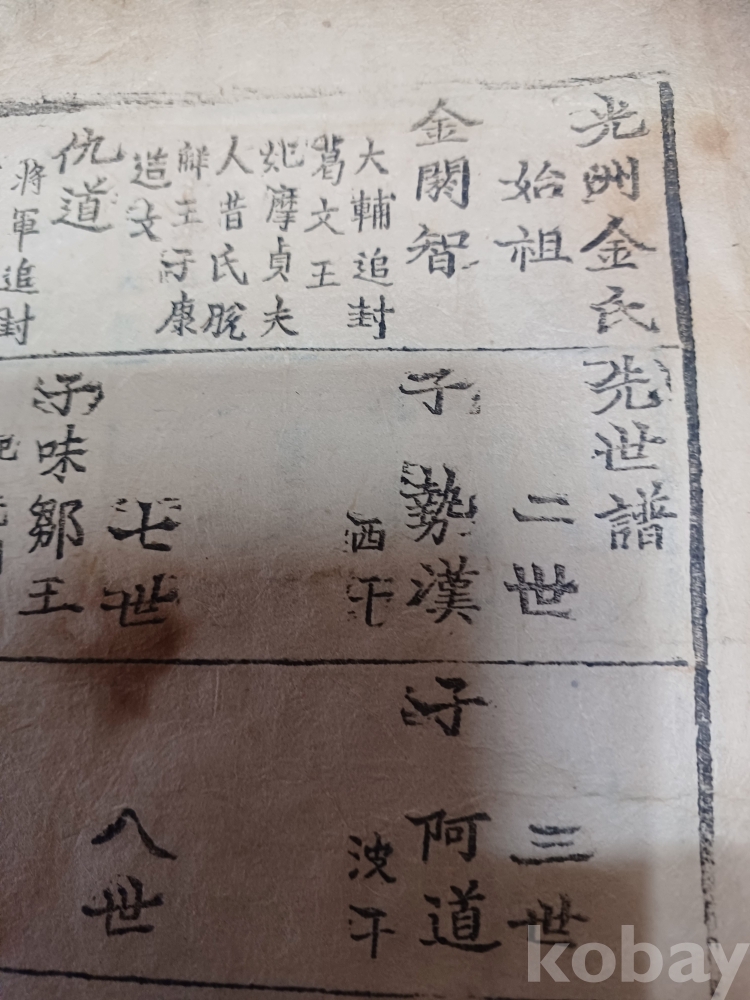 光洲金氏先世譜
始祖
金閼智
大輔追封
葛文王
妃摩貞夫
人昔氏脫
解王子康
造女
仇道
將軍追封
二世
子 勢漢
西干
七世
子味鄒王
三世
子 阿道
波干
八世
kobay